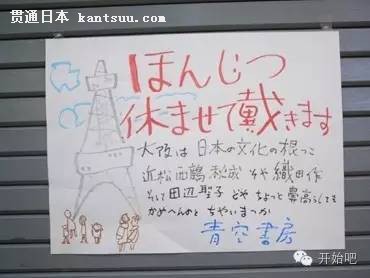 贯通日本 kantsuu.com
ほんじつ
休ませて戴きます
大阪は日本の文化の根っこ
近松西鶴秋成 今や織田作
そして田辺聖子 どや ちょっと鼻高うしても
かめへんのと ちゃいまっか
青空書房
开始吧